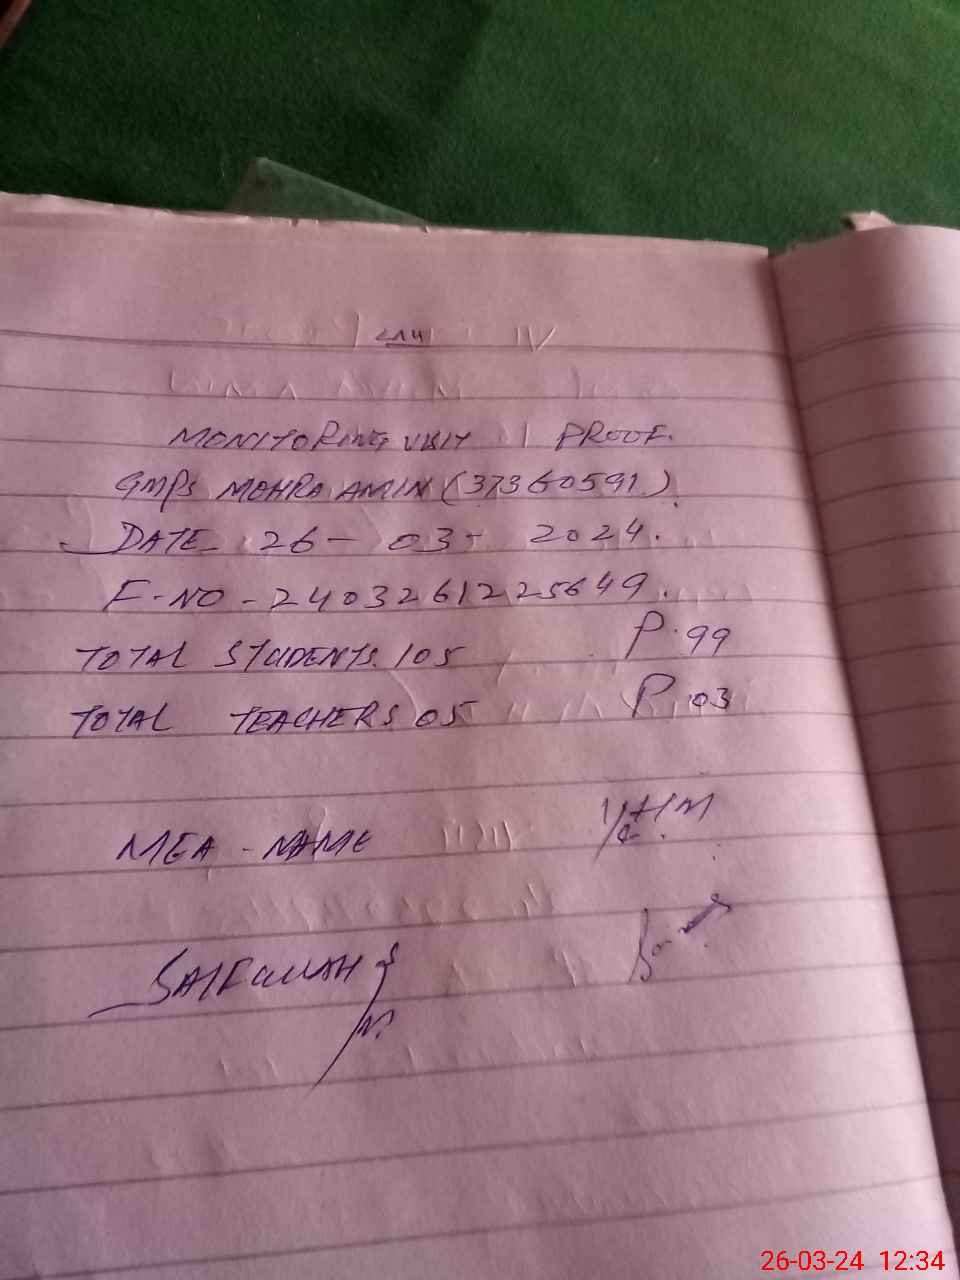 MONITORING VISIT PROOF.
GMPS MOHRA AMIN (37360591).
DATE- 26- 03- 2024.
F-NO-2403261225649.
TOTAL STUDENTS. 105 P.99
TOTAL TEACHERS. 05 P.03
MEA-NAME HM
SAIFULLAH
26-03-24 12:34